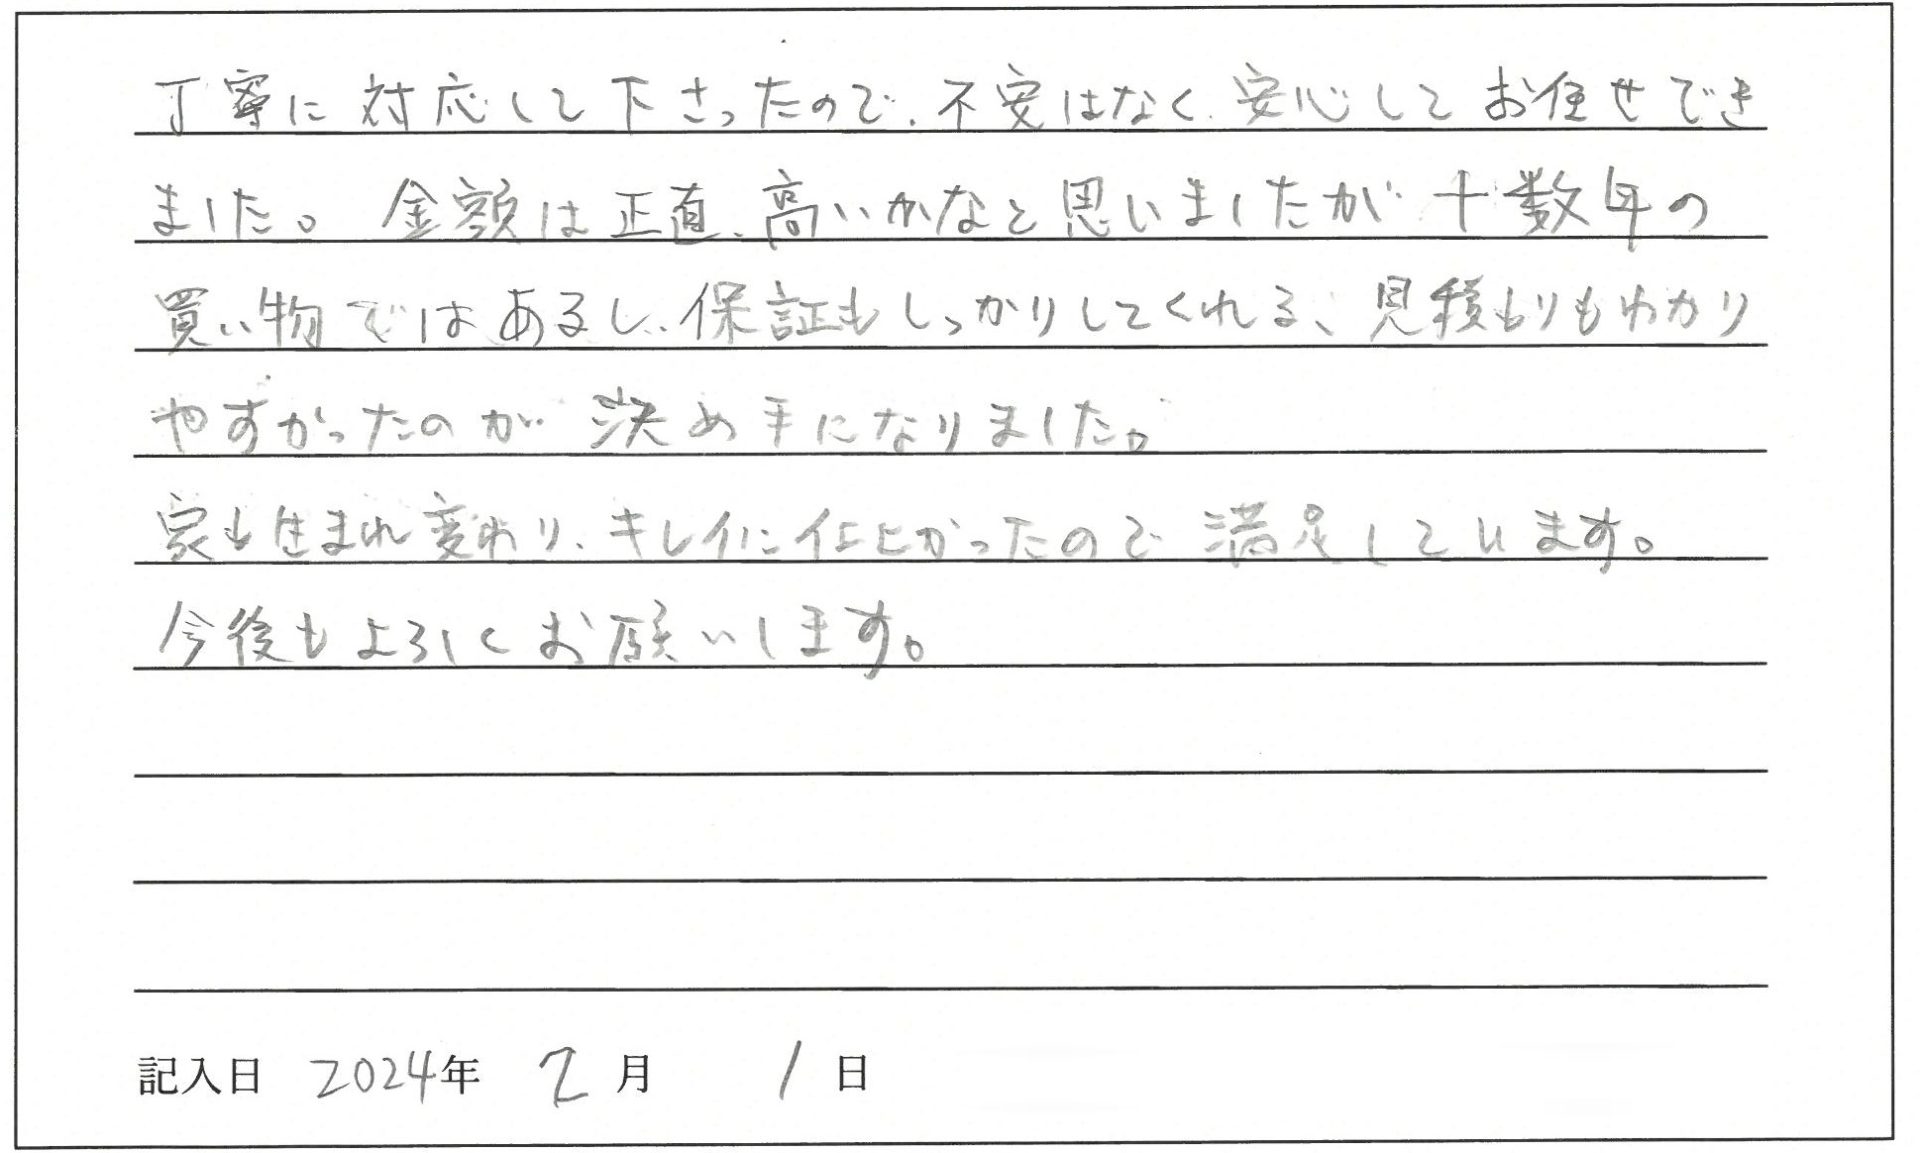 丁寧に対応して下さったので、不安はなく、安心してお任せでき
ました。金額は正直、高いかなと思いましたが十数年の
買い物ではあるし、保証もしっかりしてくれる、見積もりもわかり
やすかったのが決め手になりました。
家も生まれ変わり、キレイに仕上がったので満足しています。
今後もよろしくお願いします。
記入日 2024年 2月 1日